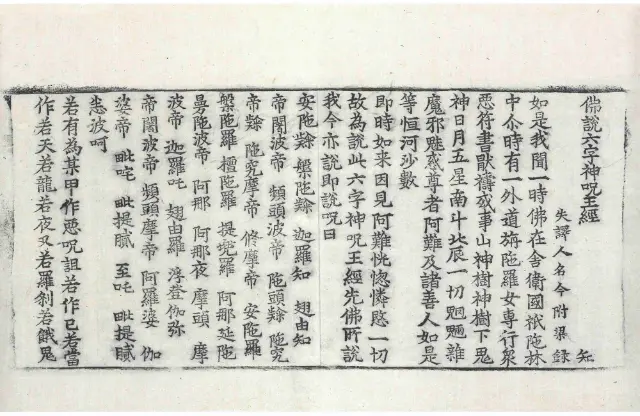 佛說六字神呪王經
失譯人名今附梁錄 知
如是我聞一時佛在舍衛國祇陁林
中尒時有一外道旃陁羅女專行衆
惡符書猒禱或事山神樹神樹下鬼
神日月五星南斗北辰一切魍魎雜
魔邪魅惑尊者阿難及諸善人如是
等恒河沙數
即時如來因見阿難恍惚憐愍一切
故為說此六字神呪王經先佛所說
我今亦說即說呪曰
安陁隸 槃陁隸 迦羅知 翅由知
帝闍波帝 頻頭波帝 陁頭隸 陁究
帝隸 陁究摩帝 修摩帝 安陁羅
槃陁羅 檀陁羅 提羅 阿那延陁
陁波帝 阿那 阿那夜 摩頭 摩
波帝 迦羅吒 翅由羅 浮登伽弥
帝闍波帝 頻頭摩帝 阿羅婆 伽
婆帝 毗吒 毗提膩 至吒 毗提膩
悉波呵
若有為某甲作惡呪詛若作已若當
作若天若龍若夜叉若羅刹若餓鬼